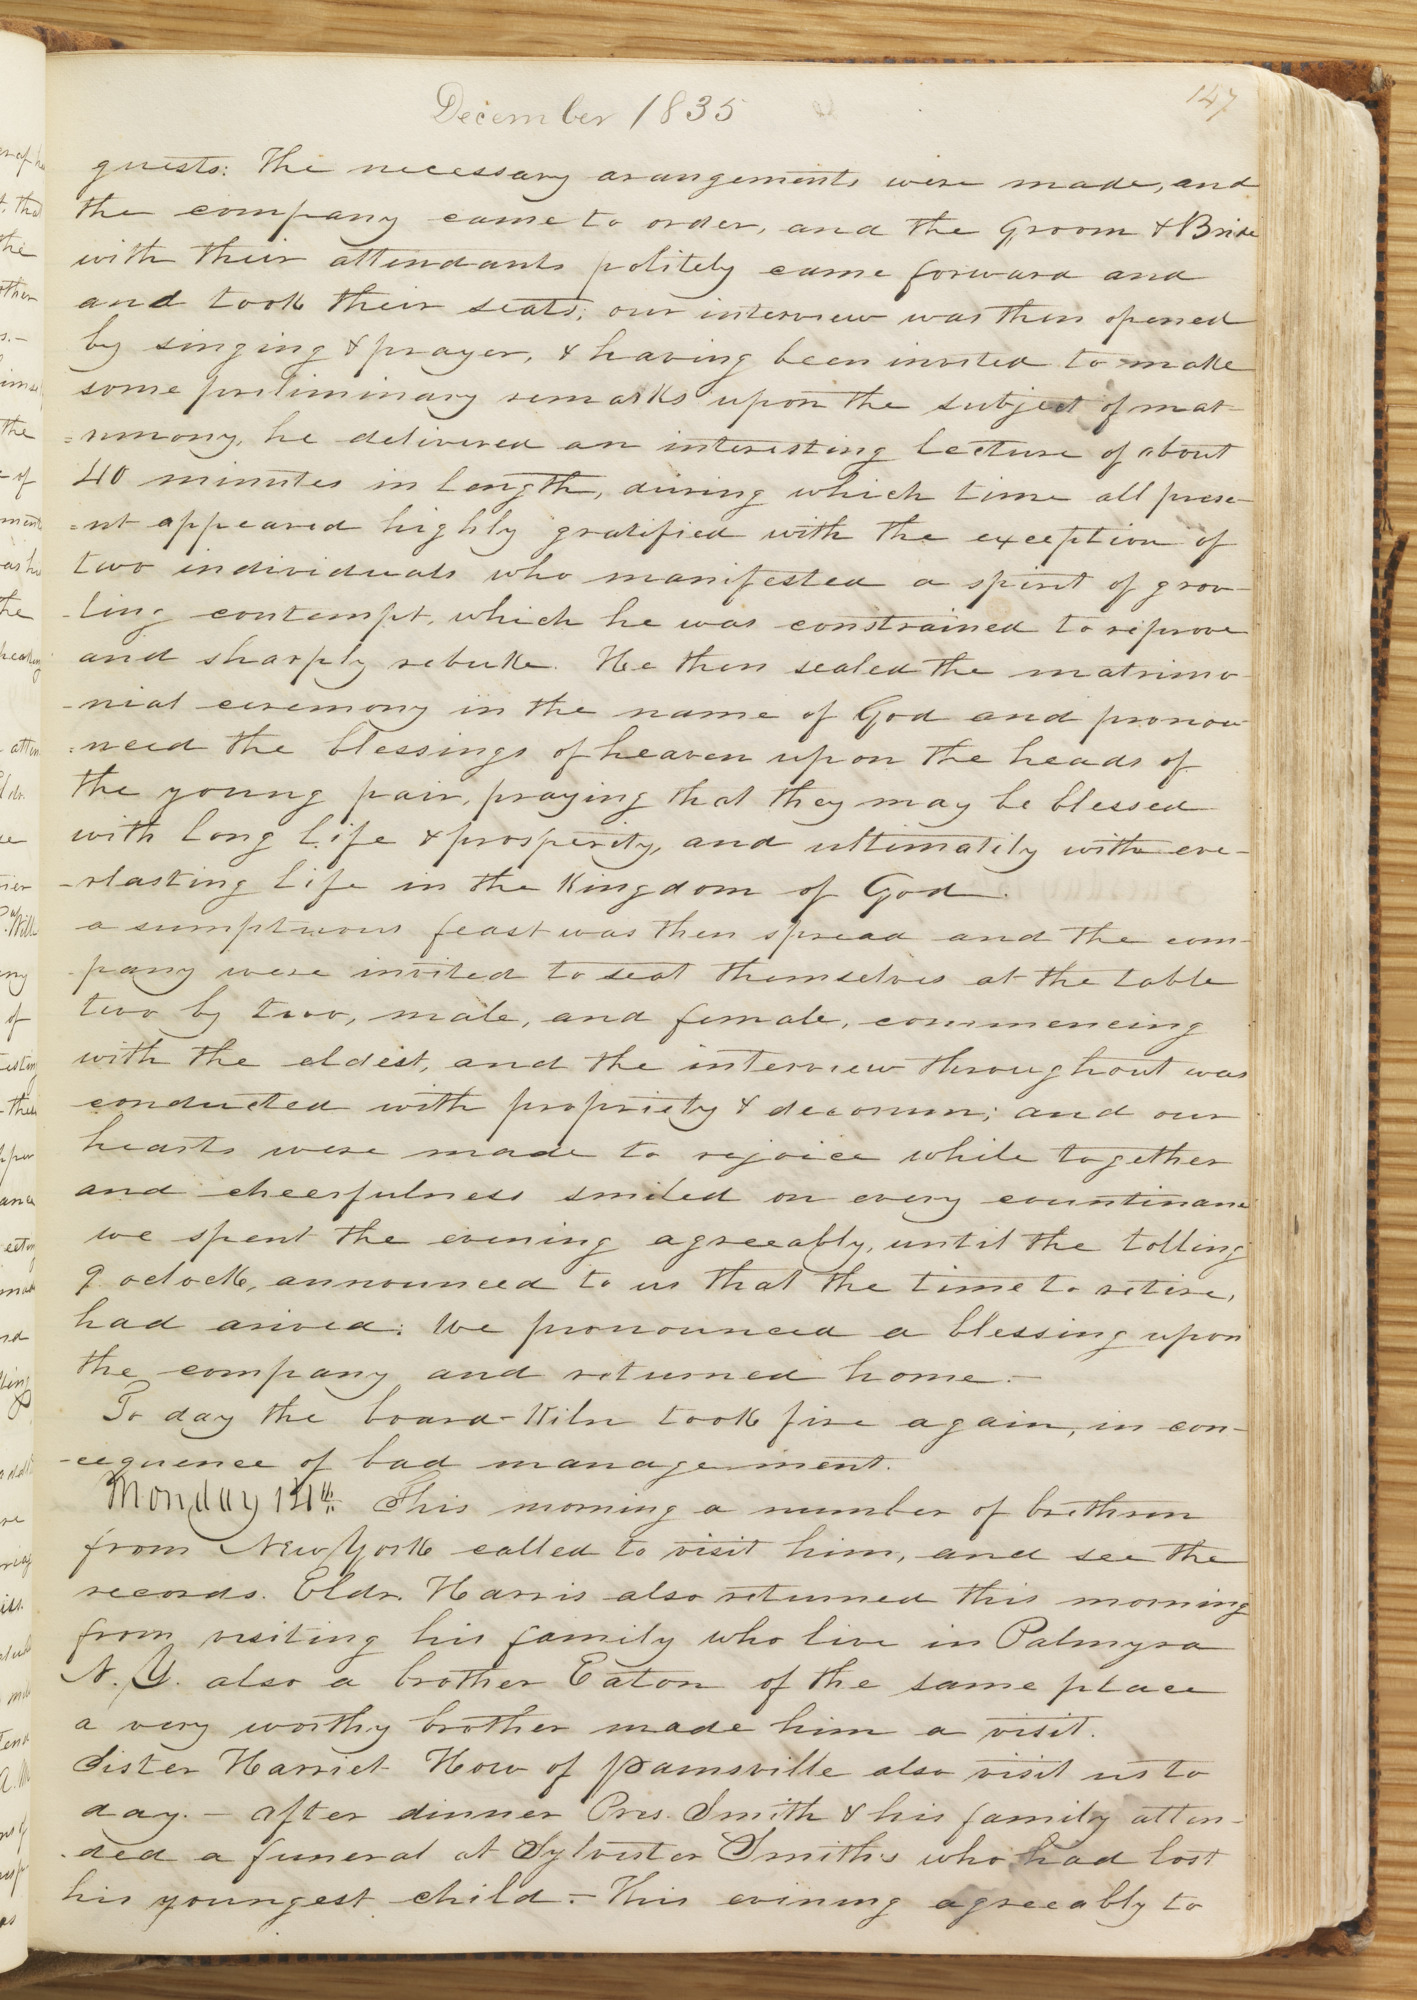 December 1835
147
guests: The necessary arangements were made, and
the company came to order, and the Groom & Bride
with their attendants politely came forward and
and took their seats; our interview was then opened
by singing & prayer, & having been invited to make
some preliminary remarks upon the subject of mat-
=rimony, he delivered an interesting lecture of about
40 minutes in length, during which time all prese-
=nt appeared highly gratified with the exception of
two individuals who manifested a spirit of grov-
-ling contempt, which he was constrained to reprove
and sharply rebuke. He then sealed the matrimo-
-nial ceremony in the name of God and pronou-
=nced the blessings of heaven upon the heads of
the young pair, praying that they may be blessed
with long life & prosperity, and ultimately with eve-
-rlasting life in the Kingdom of God.
a sumptuous feast was then spread and the com-
-pany were invited to seat themselves at the table
two by two, male, and female, commencing
with the eldest, and the interview throughout was
conducted with propriety & decorum; and our
hearts were made to rejoice while together
and cheerfulness smiled on every countinance
we spent the evening agreeably, until the tolling
9 oclock, announced to us that the time to retire,
had arived: We pronounced a blessing upon
the company and returned home.—
To day the board-kiln took fire again, in con-
-cequence of bad management.
Monday 14th. This morning a number of brethren
from New York called to visit him, and see the
records. Eldr. Harris also returned this morning
from visiting his family who live in Palmyra
N. Y. also a brother Eaton of the same place
a very worthy brother made him a visit.
Sister Harriet How of Painsville also visit us to
day. — after dinner Pres. Smith & his family atten-
-ded a funeral at Sylvester Smiths who had lost
his youngest child. — This evening agreeably to